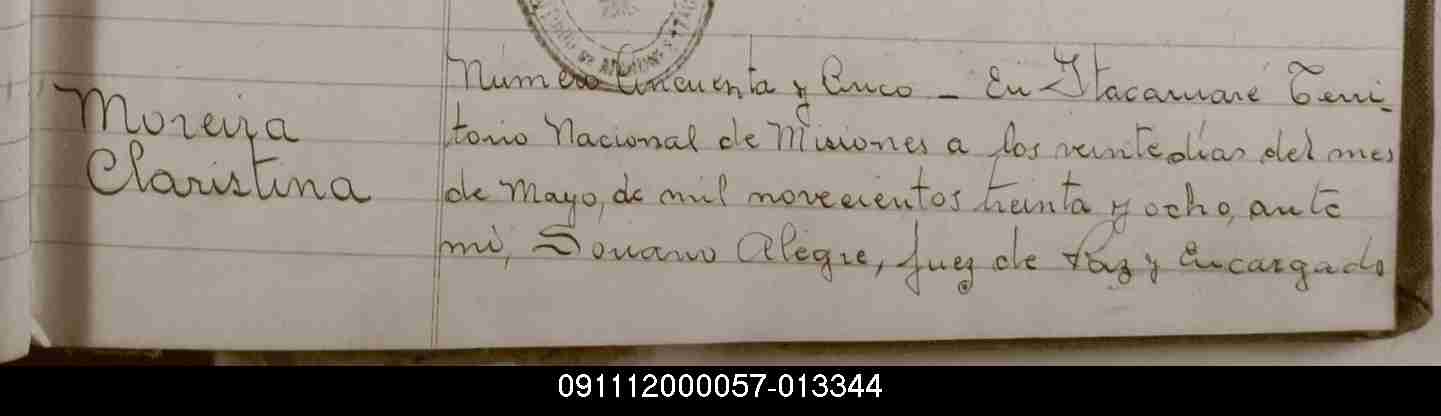 Moreira
Claristina
Número Cincuenta y Cinco - En Itacaruaré Terri-
torio Nacional de Misiones a los veinte días del mes
de Mayo, de mil novecientos treinta y ocho, ante
mi, Alegre, Juez de Paz y Encargado
091112000057-013344